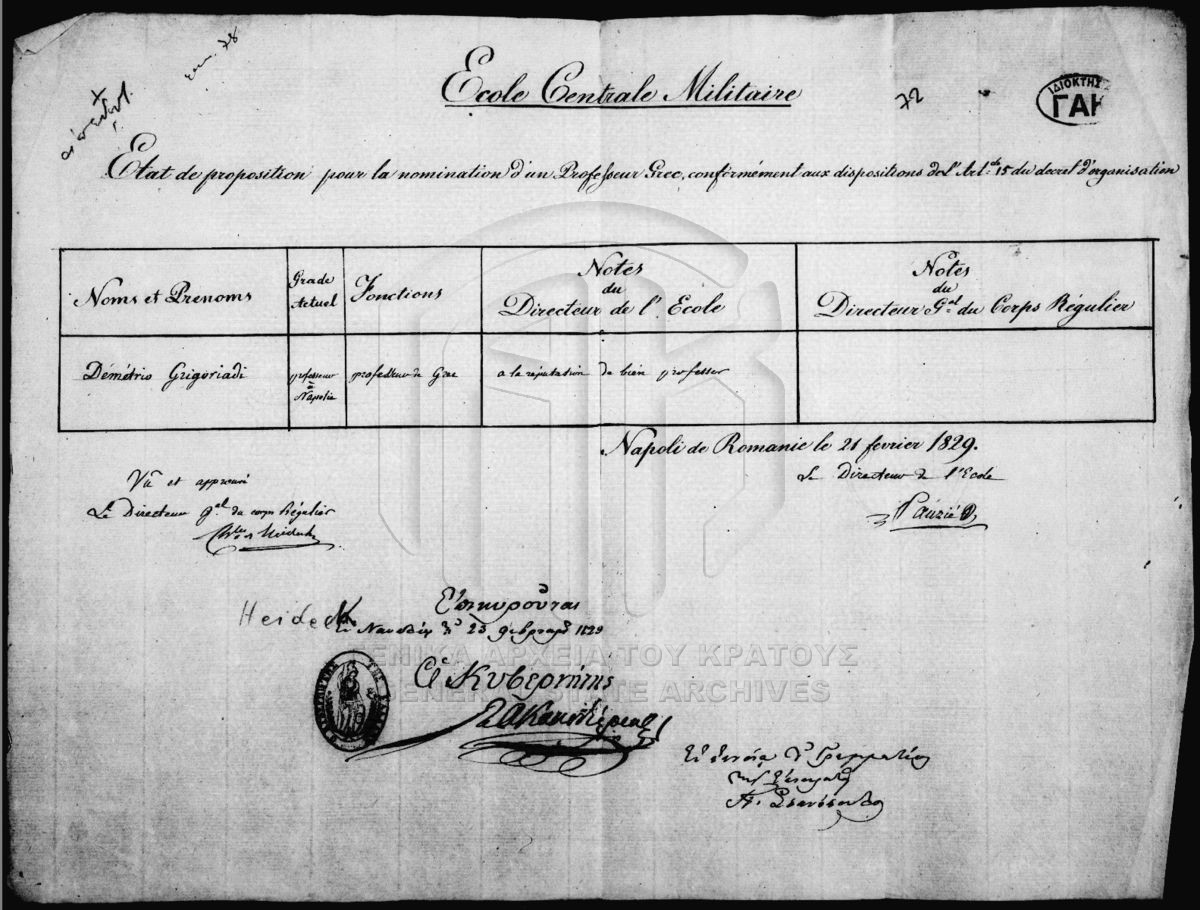 Ecole Centrale Militaire
72
ΙΔΙΟΚΤΗΣ
ΓΑΚ
Etat de proposition pour la nomination d'un Professeur Grec, conformément aux dispositions de l'Art.cle 15 du decret d'organisation
Noms et Prenoms
Grade Actuel
Fonctions
Notes du Directeur de l'Ecole
Notes du Directeur G.al du Corps Régulier
Démétrio Grigoriadi
professeur à Napolie
professeur de Grec
a la réputation de bien professer
Napoli de Romanie le 21 fevrier 1829.
Vu et approuvé
Le Directeur de l'Ecole
Le Directeur g.al du corps Régulier
Pauzié
Heideck
Ἐπικυροῦται
23 1829
ΓΕΝΙΚΑ ΑΡΧΕΙΑ ΤΟΥ ΚΡΑΤΟΥΣ
Ὁ Κυβερνήτης
GENERAL STATE ARCHIVES